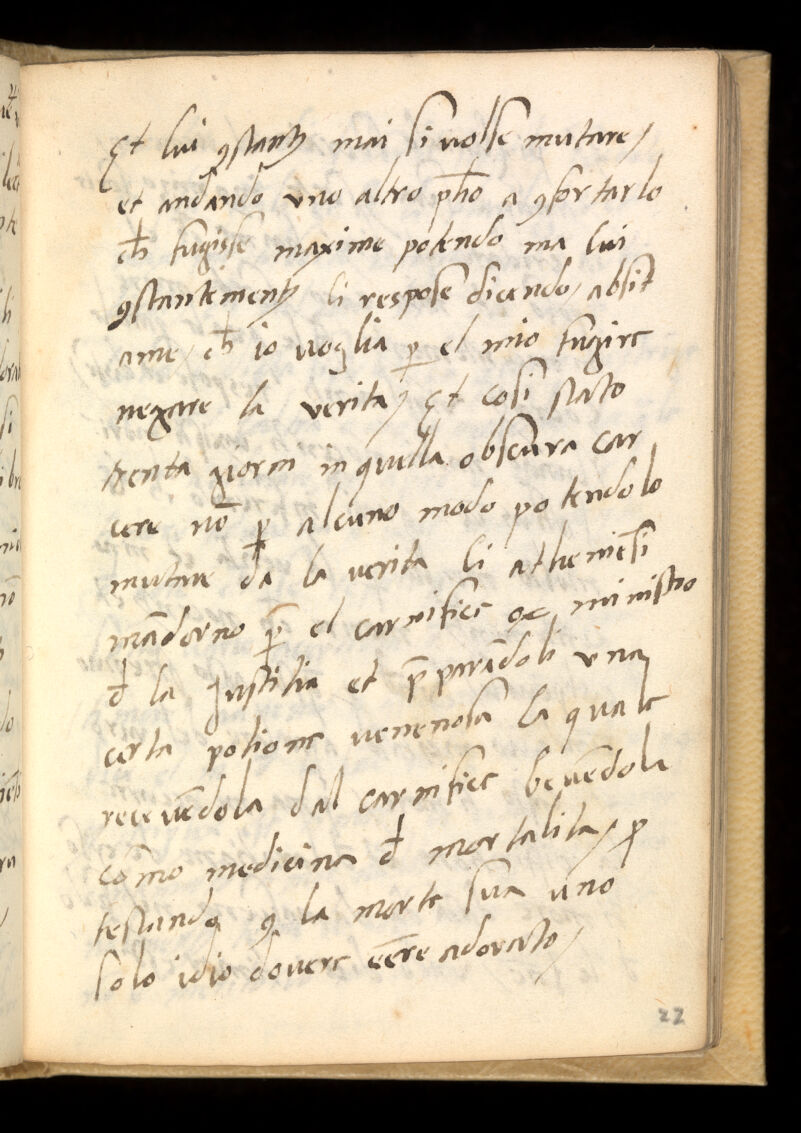 Et lui ꝯstantꝫ mai si uolse mutare/
et andando uno altro ph̄o a ꝯfortarlo
ch̄ fugisse maxime potendo ma lui
ꝯstantementꝫ li respose dicendo/ absit
ame/ ch̄ io uoglia ꝑ el mio fugire
negare la verita/ Et cosi stato
trenta giorni in quella obscura car
cere nō ꝑ alcuno modo potendolo
mutare da la uerita li atheniēsi
mādorno ꝑ el carnifice oc ministro
đ la Justitia et p̄parādoli una
certa potione uenenosa la quale
receuēdola dal carnifice beuēdola
cōmo medicina đ mortalita/ ꝓ
testando ꝯ la morte sua uno
solo idio douere eēre adorato/
22